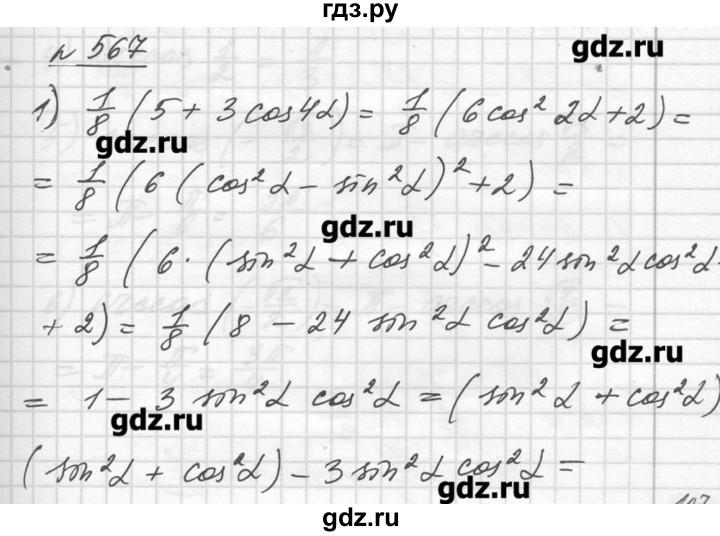 гдз.ру
N 567
gdz.ru
1) 1/8 (5 + 3 cos4α) = 1/8 (6cos² 2α+2) =
gdz.ru
= 1/8 (6 (cos²α - sin²α)² +2) =
gdz.ru
= 1/8 (6 · (sin²α + cos²α)² - 24sin²αcos²α
+ 2) = 1/8 (8 - 24 sin²α cos²α) =
gdz.ru
= 1 - 3 sin²α cos²α = (sin²α + cos²α)
gdz.ru
(sin²α + cos²α) - 3sin²α cos²α =
gdz.ru
gdz.ru